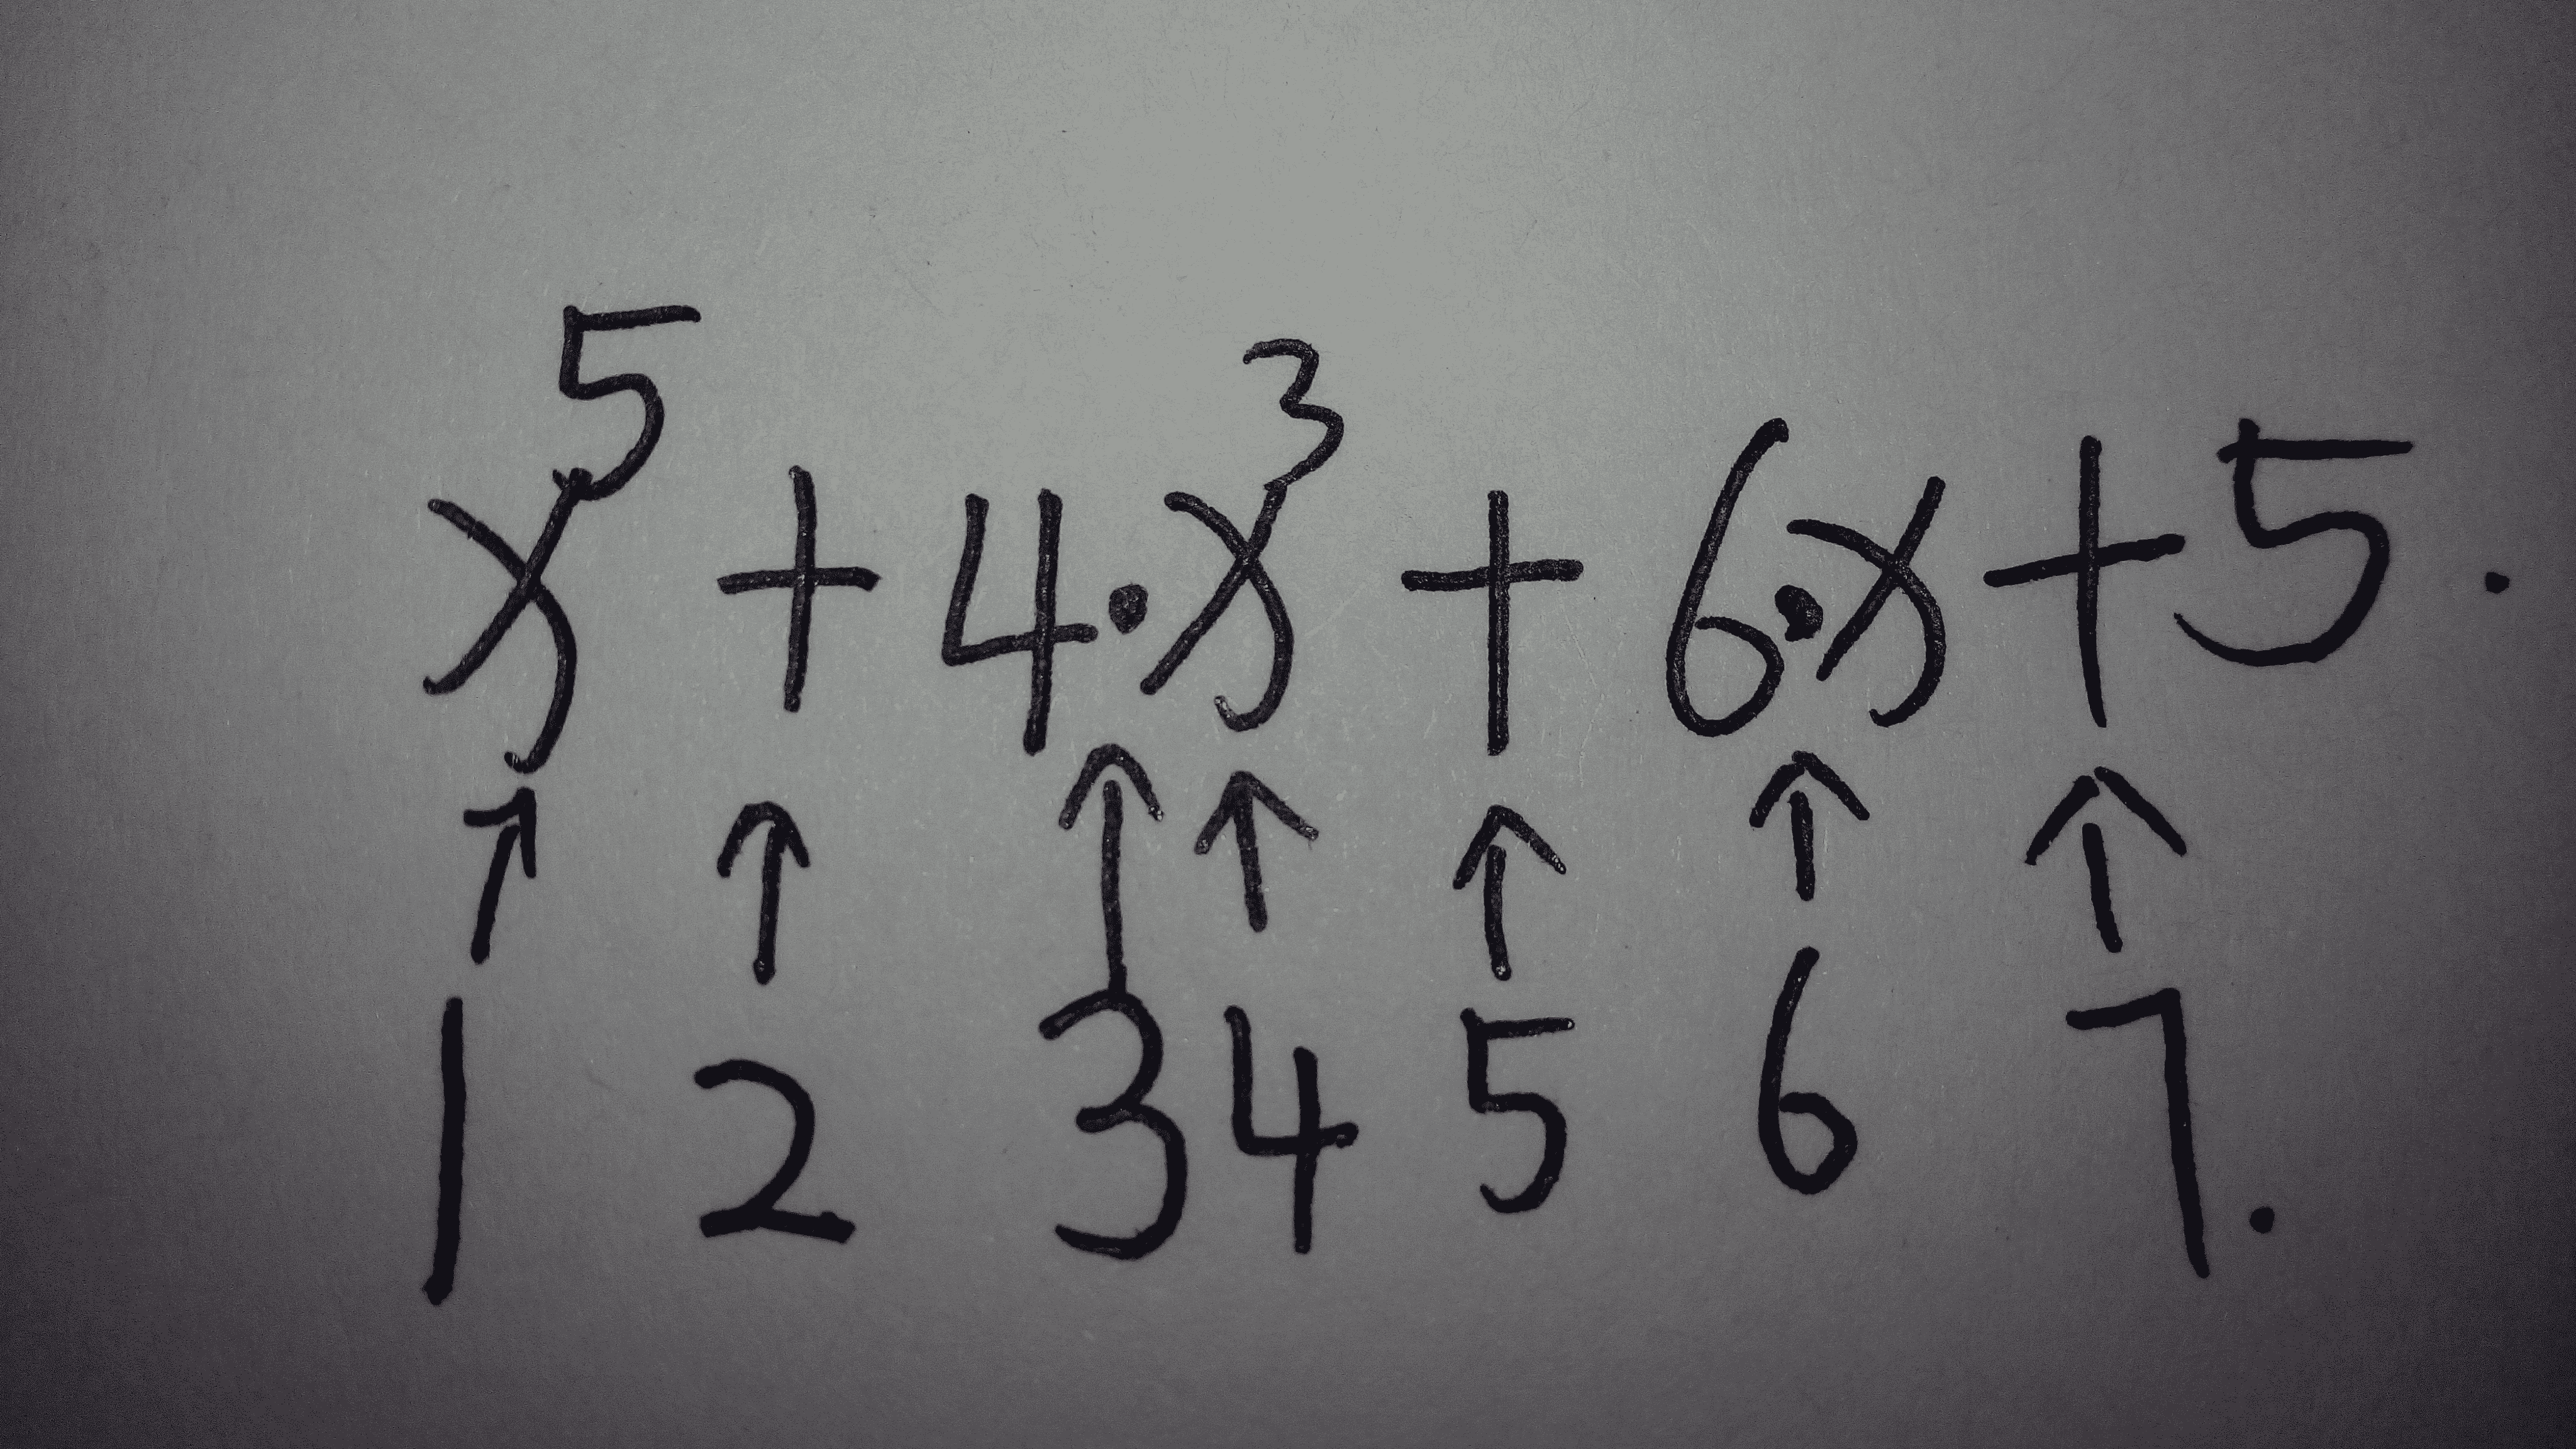 x⁵ + 4·x³ + 6·x + 5.
↑ ↑ ↑ ↑ ↑ ↑ ↑
1 2 3 4 5 6 7.